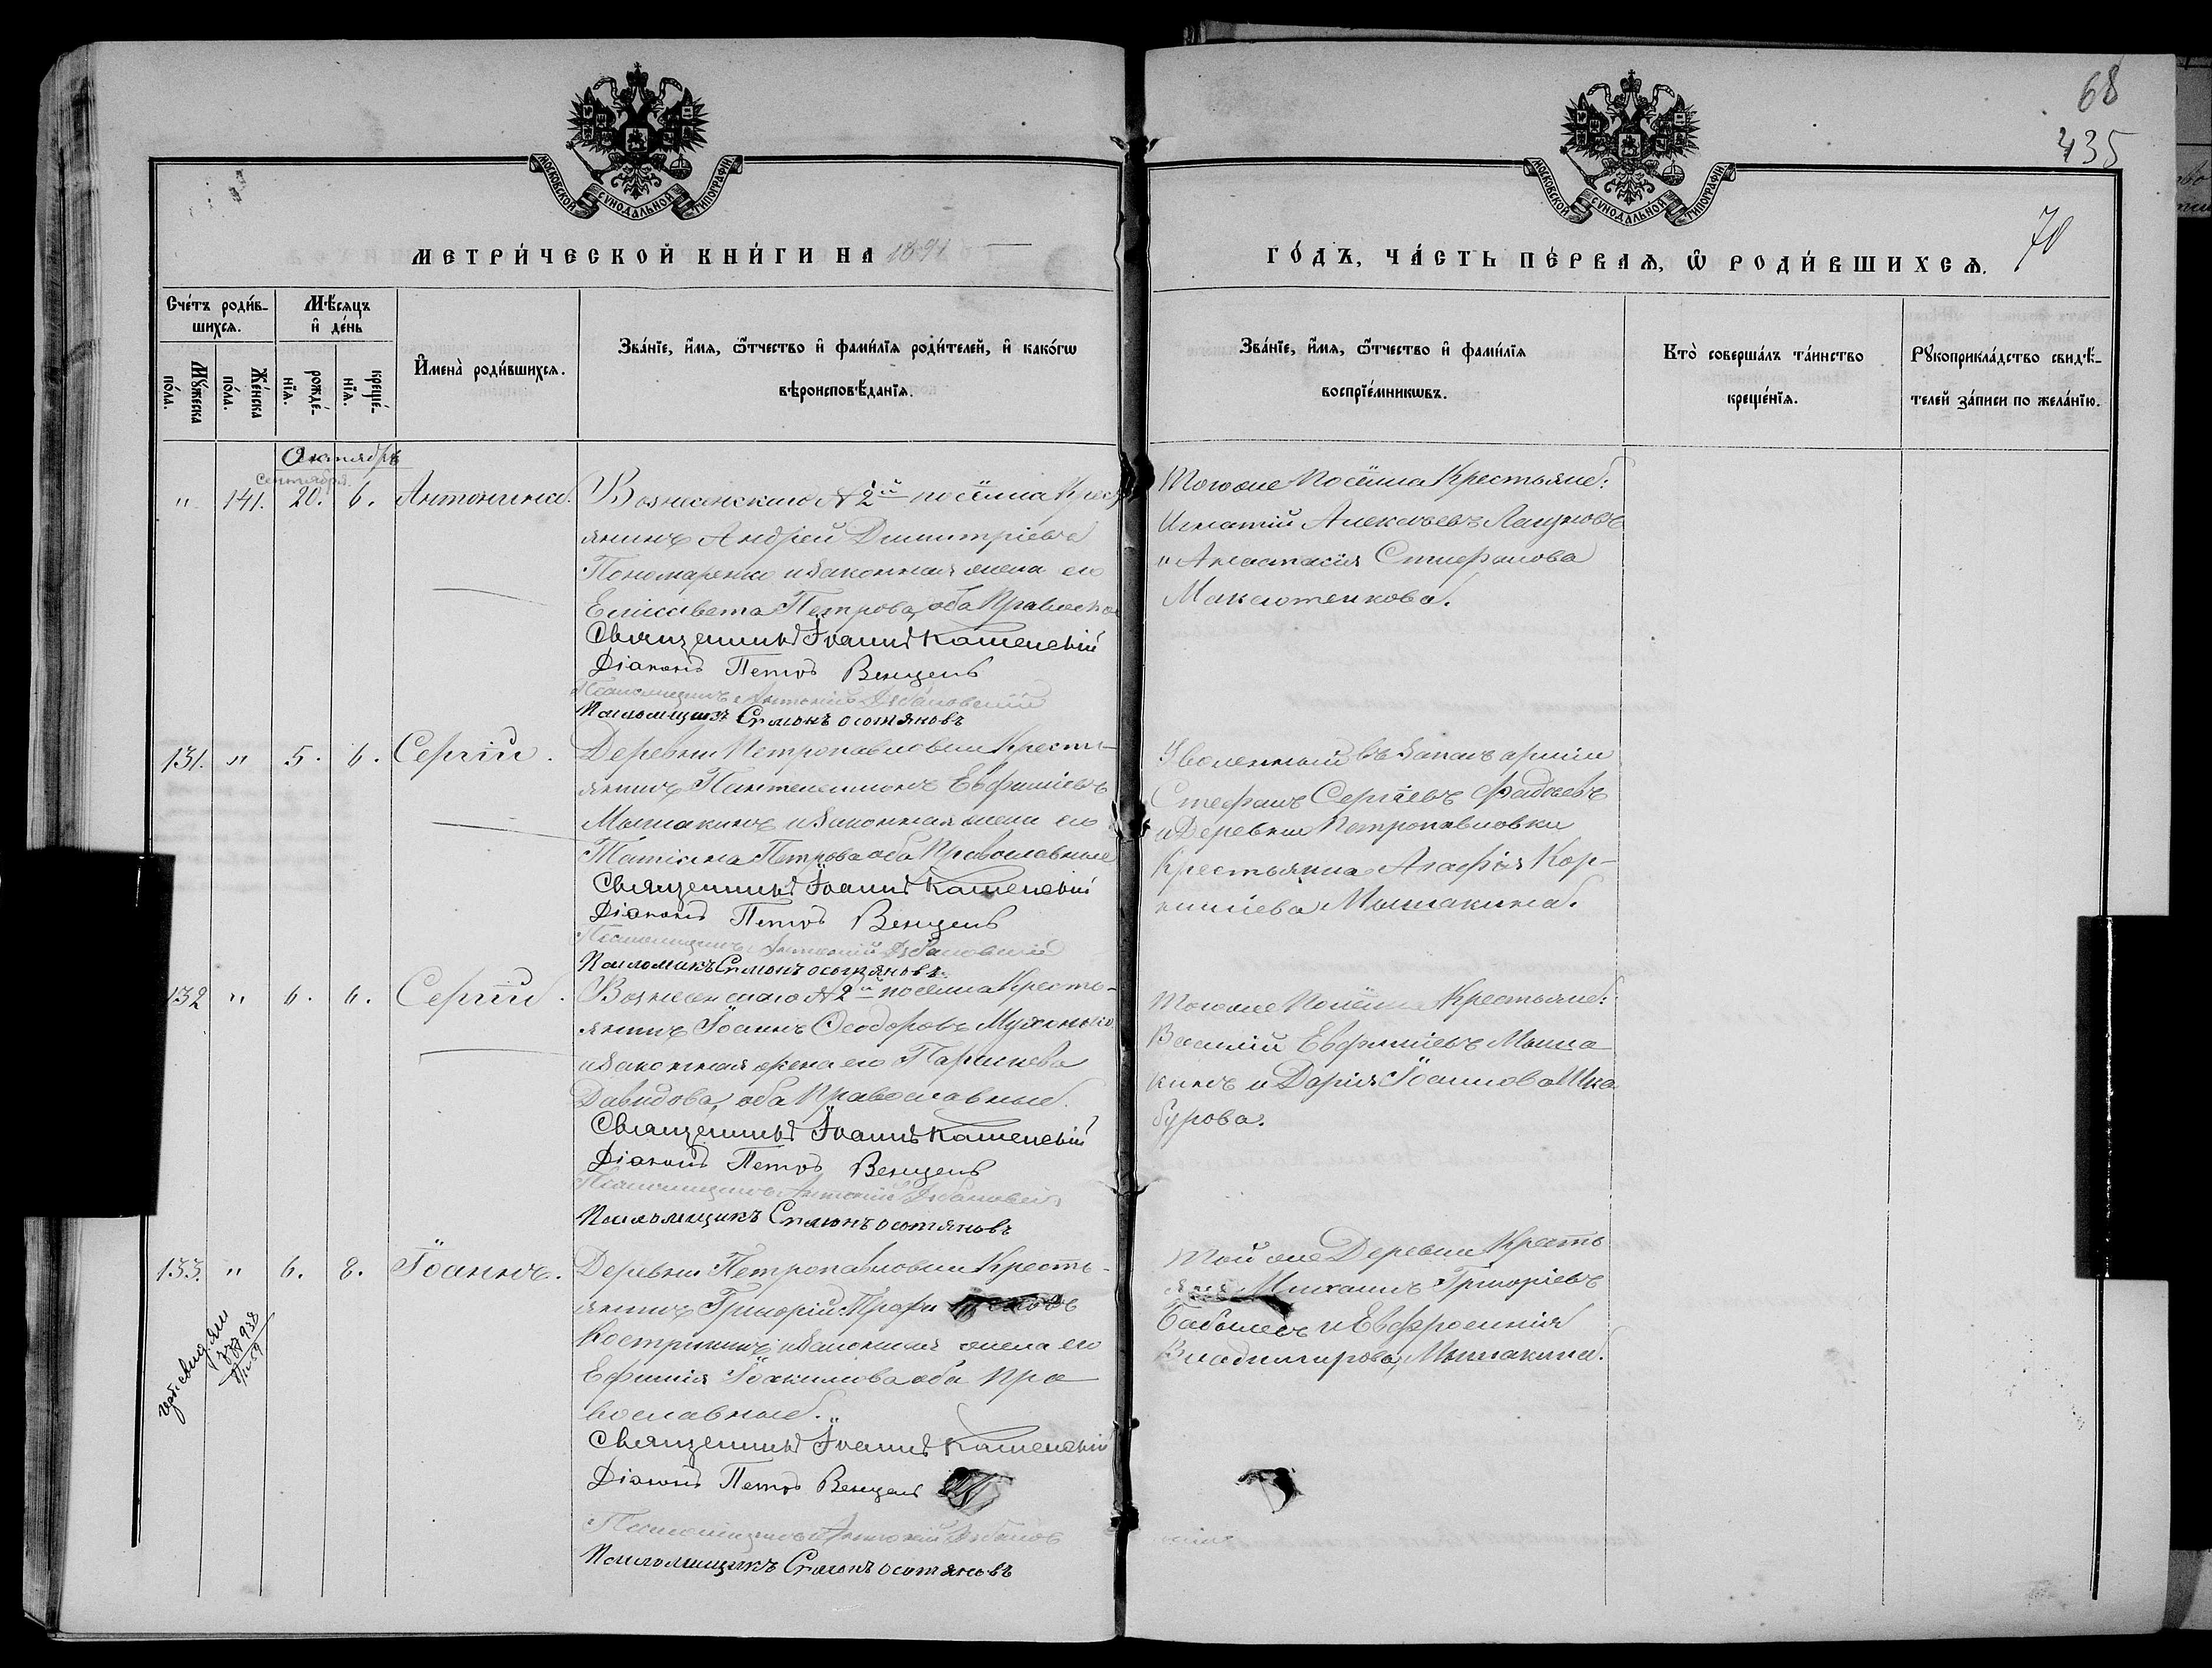 68
435
70
МОСКОВСКОЙ СѴНОДАЛЬНОЙ ТИПОГРАФІИ
МОСКОВСКОЙ СѴНОДАЛЬНОЙ ТИПОГРАФІИ
МЕТРИ́ЧЕСКОЙ КНИ́ГИ НА 1891
ГО́ДЪ, ЧА́СТЬ ПЕ́РВАѦ, Ѡ҆ РОДИ́ВШИХСѦ.
Сче́тъ роди́в-
шихсѧ.
Мꙋ́жеска
по́ла.
Же́нска
по́ла.
Мѣ́сѧцъ
и҆ де́нь
рожде́-
нїѧ.
креще́-
нїѧ.
И҆мена̀ роди́вшихсѧ.
Зва́нїе, и҆́мѧ, ѻ҆́тчество и҆ фами́лїѧ роди́телей, и҆ како́гѡ
вѣроисповѣ́данїѧ.
Зва́нїе, и҆́мѧ, ѻ҆́тчество и҆ фами́лїѧ
воспрїе́мникѡвъ.
Кто̀ соверша́лъ та́инство
креще́нїѧ.
Рꙋкоприкла́дство свидѣ́-
телей за́писи по жела́нїю.
Октябрь
Сентября.
" 141. 20. 6. Антонина. Вознесенскаго № 2й посёлка Крест
янинъ Андрей Димитріевъ
Пономаренко и законная жена его
Елисавета Петрова, оба Православ
Священникъ Іоаннъ Каменскій
Діаконъ Петръ Венцель
Псаломщикъ Антоній
Псаломщикъ Симонъ
Тогоже Посёлка Крестьяне:
Игнатій Алексѣевъ
и Анастасія Стефанова
131. " 5. 6. Сергій. Деревни Петропавловки Кресть-
янинъ Пантелеимонъ Евфиміевъ
Мышакинъ и законная жена его
Татіана Петрова оба Православные
Священникъ Іоаннъ Каменскій
Діаконъ Петръ Венцель
Псаломщикъ Антоній
Псаломщикъ Симонъ
Уволенный въ запасъ арміи
Стефанъ Сергіевъ Фадѣевъ
и Деревни Петропавловки
Крестьянка Агафія Кор-
ниліева Мышакина.
132 " 6. 6. Сергій. Вознесенскаго № 2й посёлка Кресть-
янинъ Іоаннъ Ѳеодоровъ
и законная жена его Параскева
Давидова, оба Православные.
Священникъ Іоаннъ Каменскій
Діаконъ Петръ Венцель
Псаломщикъ Антоній
Псаломщикъ Симонъ
Тогоже Посёлка Крестьяне:
Василій Евфиміевъ Мыша
кинъ и Дарія Іоаннова Шка
бурова.
133. " 6. 8. Іоаннъ. Деревни Петропавловки Кресть-
янинъ Григорій
Кострикинъ и законная жена его
Ефимія Іоакимова оба Пра
вославные.
Священникъ Іоаннъ Каменскій
Діаконъ Петръ Венцель
Псаломщикъ Антоній
Псаломщикъ Симонъ
Той же Деревни Кресть
яне Михаилъ Григоріевъ
и Евфросинія
Владимирова, Мышакина.